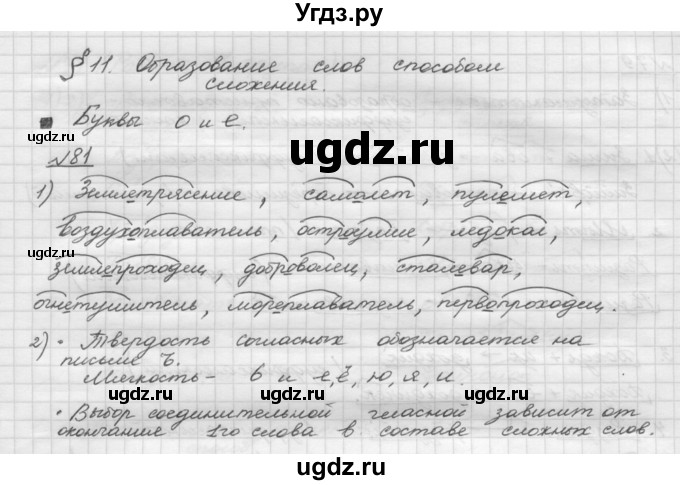 Угдз.ру
§ 11. Образование слов способом
сложения.
Буквы о и е.
ugdz.ru ugdz.ru
№81
1) Землетрясение, самолет, пулемет,
ugdz.ru ugdz.ru
воздухоплаватель, остроумие, ледокол,
землепроходец, доброволец, сталевар,
ugdz.ru ugdz.ru
огнетушитель, мореплаватель, первопроходец.
2) • Твердость согласных обозначается на
письме ъ.
ugdz.ru ugdz.ru
Мягкость - ь и е, ё, ю, я, и.
• Выбор соединительной гласной зависит от
окончания 1го слова в составе сложных слов.
ugdz.ru